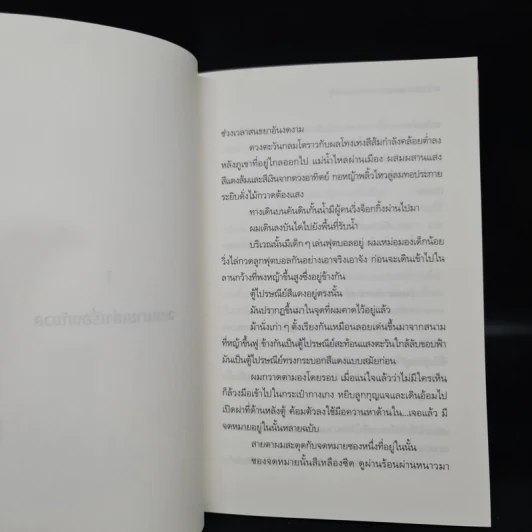 ช่วงเวลาสนธยาอันงดงาม
ดวงตะวันกลมโตราวกับผลโทงเทงสีส้มกำลังคล้อยต่ำลง
หลังภูเขาที่อยู่ไกลออกไป แม่น้ำไหลผ่านเมือง ผสมผสานแสง
สีแดงส้มและสีเงินจากดวงอาทิตย์ กอหญ้าพลิ้วไหวลู่ลมทอประกาย
ระยิบดั่งไม้กวาดต้องแสง
ทางเดินบนคันดินกั้นน้ำมีผู้คนวิ่งจ๊อกกิ้งผ่านไปมา
ผมเดินลงบันไดไปยังพื้นที่รับน้ำ
บริเวณนั้นมีเด็กๆ เล่นฟุตบอลอยู่ ผมเหม่อมองเด็กน้อย
วิ่งไล่กวดลูกฟุตบอลกันอย่างเอาจริงเอาจัง ก่อนจะเดินเข้าไปใน
ลานกว้างที่พงหญ้าขึ้นสูงซึ่งอยู่ข้างกัน
ตู้ไปรษณีย์สีแดงอยู่ตรงนั้น
มันปรากฏขึ้นมาในจุดที่ผมคาดไว้อยู่แล้ว
ม้านั่งเก่าๆ ตั้งเรียงกันเหมือนลอยเด่นขึ้นมาจากสนาม
ที่หญ้าขึ้นฟู ข้างกันเป็นตู้ไปรษณีย์สะท้อนแสงตะวันใกล้ลับขอบฟ้า
มันเป็นตู้ไปรษณีย์ทรงกระบอกสีแดงแบบสมัยก่อน
ผมกวาดตามองโดยรอบ เมื่อแน่ใจแล้วว่าไม่มีใครเห็น
ก็ล้วงมือเข้าไปในกระเป๋ากางเกง หยิบลูกกุญแจและเดินอ้อมไป
เปิดฝาที่ด้านหลังตู้ ค้อมตัวลงใช้มือควานหาด้านใน...เจอแล้ว มี
จดหมายอยู่ในนั้นหลายฉบับ
สายตาผมสะดุดกับจดหมายซองหนึ่งที่อยู่ในนั้น
ซองจดหมายนั้นสีเหลืองซีด ดูผ่านร้อนผ่านหนาวมา